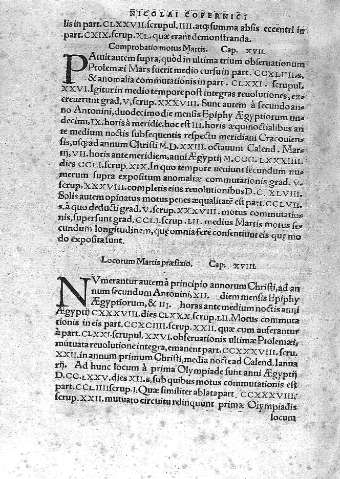 NICOLAI COPERNICI
lis in part. CLXXVII. scrupul. IIII. atq; summa absis eccentri in
part. CXIX. scrup. XL. quæ erant demonstranda.
Comprobatio motus Martis. Cap. XVII.
PAtuit autem supra, quòd in ultima trium obseruationum
Ptolemæi Mars fuerit medio cursu in part.
& anomalia commutationis in part. CLXXI. scrupul.
XXVI. Igitur in medio tempore post integras reuolutiones, ex-
creuerunt grad. V. scrup. XXXVIII. Sunt autem à secundo an-
no Antonini, duodecimo die mensis Epiphy Ægyptiorum un-
decimi, IX. horis à meridie, hoc est III. horis æquinoctialibus an-
te medium noctis subsequentis respectu meridiani Cracouien-
sis, usq; ad annum Christi M.D.XXIII. octauum Calend. Mar-
tij, VII. horis ante meridiem, anni Ægyptij
dies CCLI. scrup. XIX. In quo tempore ueniunt secundum nu-
merum supra expositum anomaliæ commutationis grad. V.
scrup. XXXVIII. completis eius reuolutionibus
Solis autem opinatus motus penes æqualitatē est part. CCLVII.
à quo deducti grad. V. scrup. XXXVIII. motus commutatio-
nis, supersunt grad. CCLI. scrup. LII. medius Martis motus se-
cundum longitudinem, quæ omnia ferè consentiunt eis quę mo
do exposita sunt.
Locorum Martis præfixio. Cap. XVIII.
NVmerantur autem à principio annorum Christi, ad an
num secundum Antonini, XII. diem mensis Epiphy
Ægyptiorum, & III. horas ante medium noctis anni
Ægyptij CXXXVIII. dies CLXXX. scrup. LII. Motus commuta
tionis in eis part. CCXCIIII. scrup. XXII. quæ cum auferantur
à part. CLXXI. scrupul. XXVI. obseruationis ultimæ Ptolemæi,
mutuata reuolutione integra, emanent part. CCXXXVIII. scru.
XXII. in annum primum Christi, media nocte ad Calend. Ianua
rij. Ad hunc locum à prima Olympiade sunt anni Ægyptij
D.CC.LXXV. dies XII.s, sub quibus motus commutationis est
part. CCLIIII. scrup. I. Quæ similiter ablata part. CCXXXVIII
scrup. XXII. mutuato circuitu relinquunt primæ Olympiadis
locum